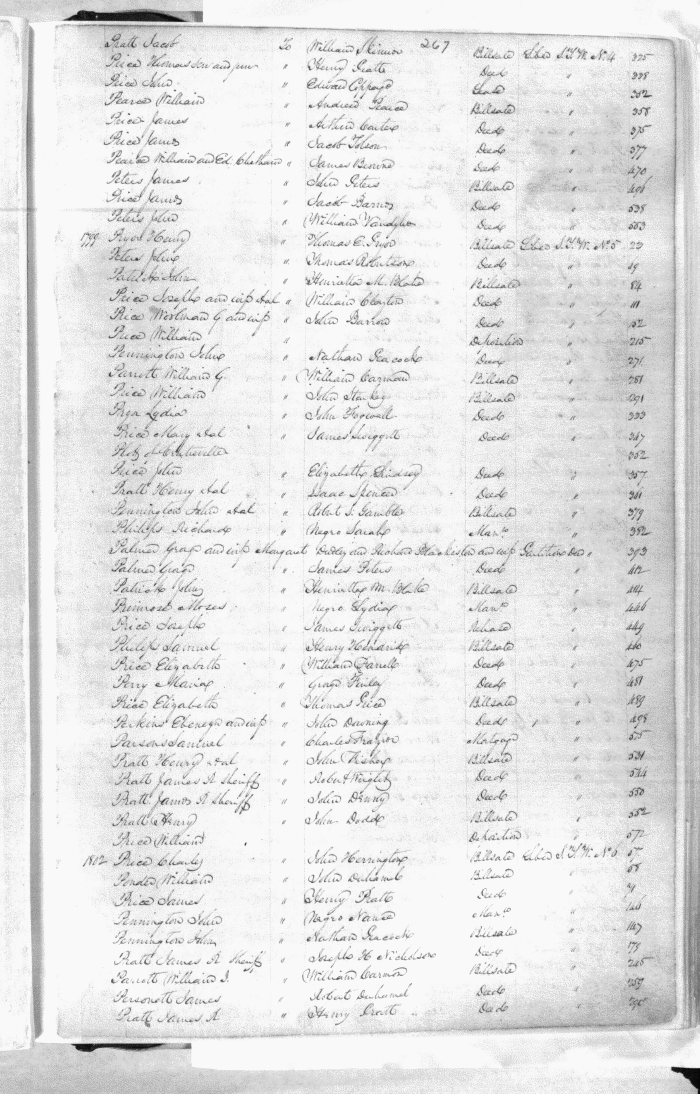 267
Pratt Jacob To William Skinner Billsale Liber S.T.W. No 4 325
Price Thomas Sen and jun " Henry Pratt Deed " 338
Price John " Edward Coppage " 352
Pearce William " Andrew Pearce Billsale " 358
Price James " Arthur Carter Deed " 375
Price James " Jacob Tolson Deed " 377
Pearce William and Ed. Chetham " James Browne Deed " 470
Peters James " John Peters Billsale " 496
Price James " Jacob Barnes Deed " 538
Peters John " William Vaughn Deed " 563
1799 Pryor Henry " Thomas E. Pryor Billsale Liber S.T.W. No 5 23
Peters John " Thomas Robertson Deed " 49
Patrick John " Henrietta M. Blake Billsale " 84
Price Joseph and wife &al " William Clayton Deed " 111
Price Workman G and wife " John Barrow Deed " 152
Price William " Deposition " 215
Pennington John " Nathan Peacock Deed " 271
Parrott William G. " William Carman Billsale " 281
Price William " John Starkey Billsale " 291
Pryor Lydia " John Hopewell Deed " 333
Price Mary &al " James Swiggett Deed " 347
Plot of Centreville 352
Price John " Elizabeth Deed " 357
Pratt Henry &al " Isaac Spencer Deed " 361
Pennington John &al " Robt. S. Gamble Billsale " 379
Philips Richard " Negro Sarah Mann. " 382
Palmer Gray and wife Margaret Deddy and Richard Blackiston and wife Partition Deed " 393
Palmer Gray " James Peters Deed " 412
Patrick John " Henrietta M. Blake Billsale " 414
Primrose Moses " Negro Lydia Mann. " 446
Price Joseph " James Swiggett Release " 449
Philips Samuel " Henry Hendrix Billsale " 460
Price Elizabeth " William Farrell Deed " 475
Perry Maria " George Finley Deed " 481
Price Elizabeth " Thomas Price Billsale " 489
Perkins Ebenezer and wife " John Downing Deed " 498
Parsons Samuel " Charles Frazier Mortgage " 515
Pratt Henry &al " John Fisher Billsale " 531
Pratt James A Sheriff " Robert Wright Deed " 544
Pratt James A Sheriff " John Denny Deed " 550
Pratt Henry " John Dodd Billsale " 552
Price William Deposition " 572
1802 Price Charles " John Herrington Billsale Liber S.T.W. No 6 5
Ponder William " John Duhamel Billsale " 58
Price James " Henry Pratt Deed " 71
Pennington John " Negro Nance Mann. " 141
Pennington John " Nathan Peacock Billsale " 147
Pratt James A Sheriff " Joseph H Nicholson Deed " 179
Parrott William J. " William Carmon Billsale " 245
Personett James " Robert Duhamel Deed " 259
Pratt James A " Henry Pratt Deed "